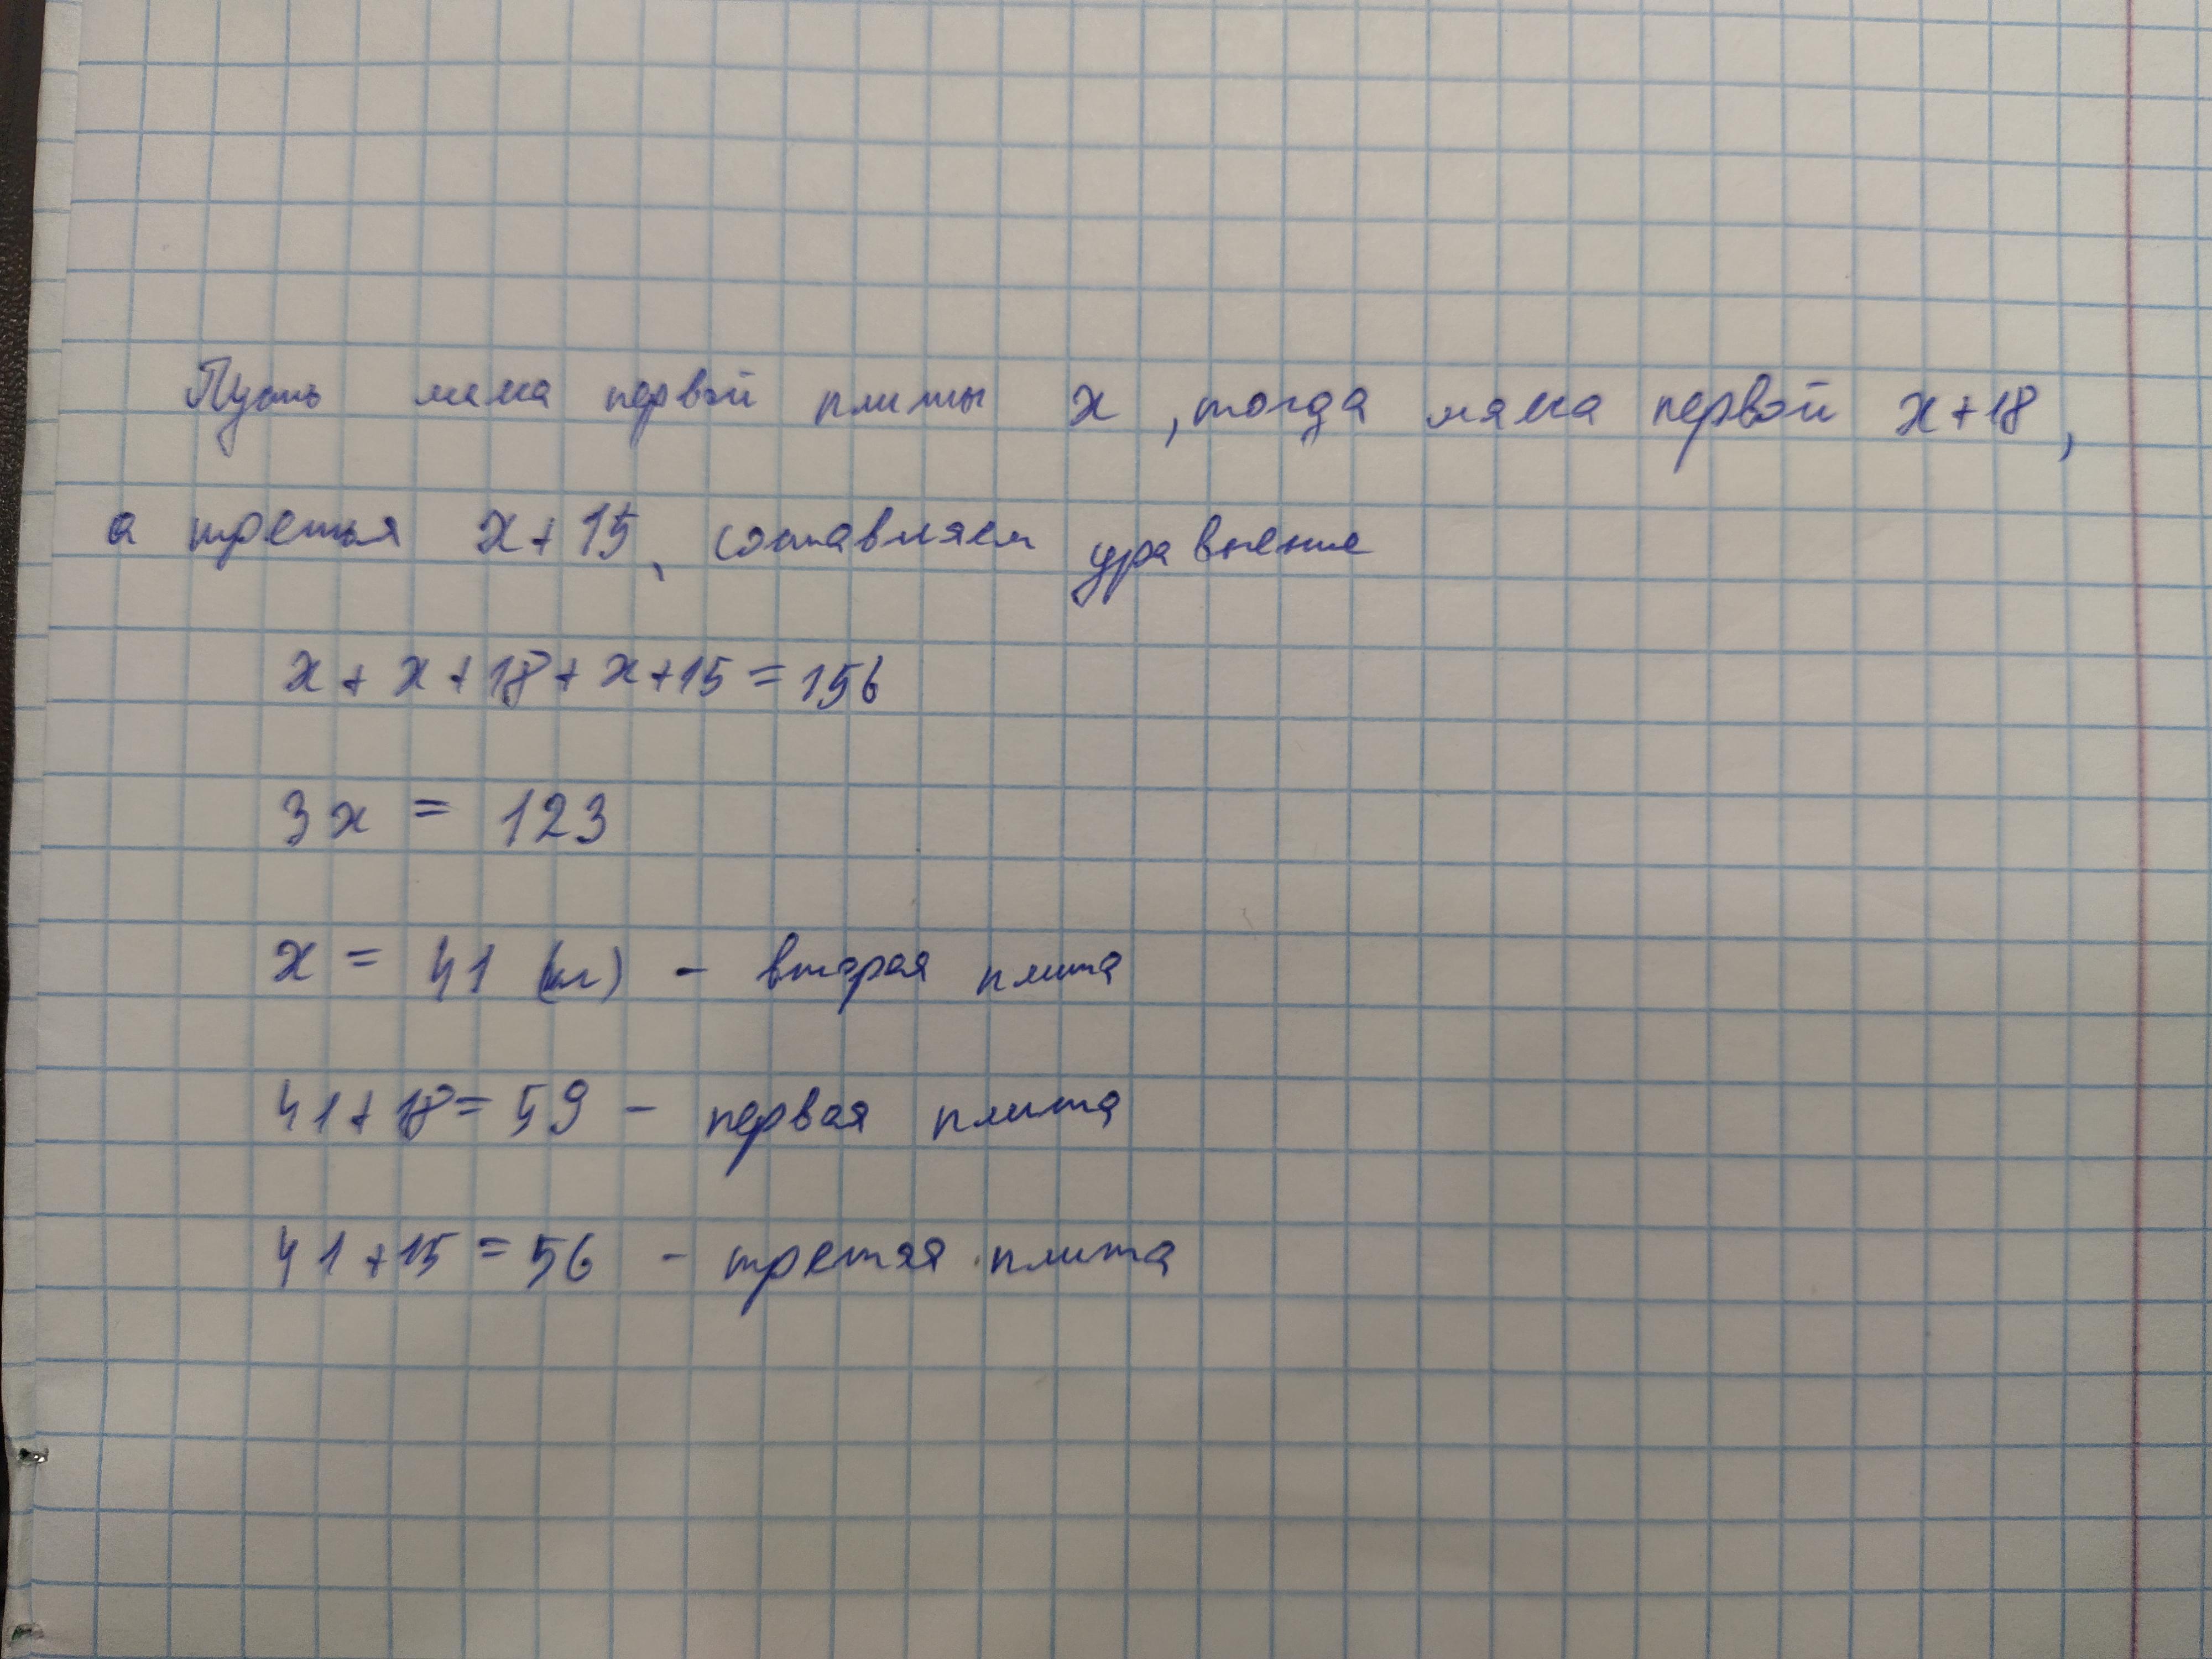 Пусть масса первой плиты x, тогда масса первой x+18,
а третья x+15, составляем уравнение
x+x+18+x+15=156
3x = 123
x = 41 (кг) - вторая плита
41+18=59 - первая плита
41+15=56 - третяя плита